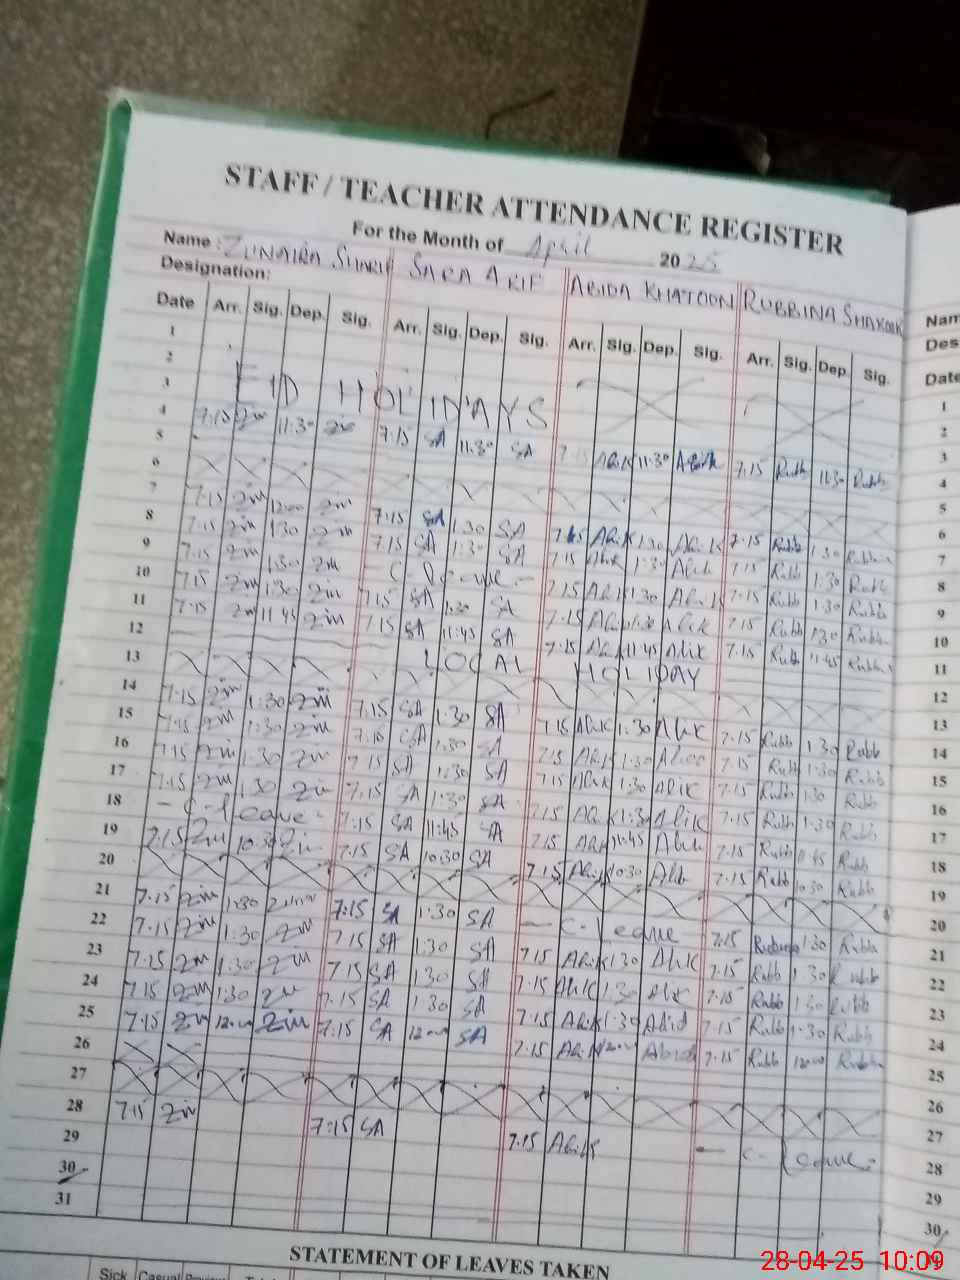 STAFF / TEACHER ATTENDANCE REGISTER
For the Month of April 2025
Name: ZUNAIRA SHARIF SARA ARIF ABIDA KHATOON RUBBINA SHAKOOR
Designation:
Date Arr. Sig. Dep. Sig. Arr. Sig. Dep. Sig. Arr. Sig. Dep. Sig. Arr. Sig. Dep. Sig.
1
2
3 EID HOLIDAYS
4 7:15 Zin 11:30 Zin 7:15 SA 11:30 SA 7:15 Abik 11:30 Abik 7:15 Rubb 11:30 Rubb
5
6
7 7:15 Zin 12:00 Zin 7:15 SA 1:30 SA 7:15 Abik 1:30 Abik 7:15 Rubb 1:30
8 7:15 Zin 1:30 Zin 7:15 SA 1:30 SA 7:15 Abik 1:30 Abik 7:15 Rubb 1:30 Rubb
9 7:15 Zin 1:30 Zin - C-Leave - 7:15 Abik 1:30 Abik 7:15 Rubb 1:30 Rubb
10 7:15 Zin 1:30 Zin 7:15 SA 1:30 SA 7:15 Abik 1:30 Abik 7:15 Rubb 1:30 Rubb
11 7:15 Zin 11:45 Zin 7:15 SA 11:45 SA 7:15 Abik 11:45 Abik 7:15 Rubb 11:45 Rubb
12 LOCAL HOLIDAY
13
14 7:15 Zin 1:30 Zin 7:15 SA 1:30 SA 7:15 Abik 1:30 Abik 7:15 Rubb 1:30 Rubb
15 7:15 Zin 1:30 Zin 7:15 SA 1:30 SA 7:15 Abik 1:30 7:15 Rubb 1:30 Rubb
16 7:15 Zin 1:30 Zin 7:15 SA 1:30 SA 7:15 Abik 1:30 Abik 7:15 Rubb 1:30 Rubb
17 7:15 Zin 1:30 Zin 7:15 SA 1:30 SA 7:15 Abik 1:30 Abik 7:15 Rubb 1:30 Rubb
18 - C-leave - 7:15 SA 11:45 SA 7:15 Abik 11:45 Abik 7:15 Rubb 11:45 Rubb
19 7:15 Zin 10:30 Zin 7:15 SA 10:30 SA 7:15 Abik 10:30 Abik 7:15 Rubb 10:30 Rubb
20
21 7:15 Zin 1:30 7:15 SA 1:30 SA - C-Leave 7:15 1:30 Rubba
22 7:15 Zin 1:30 Zin 7:15 SA 1:30 SA 7:15 Abik 1:30 Abik 7:15 Rubb 1:30 Rubb
23 7:15 Zin 1:30 Zin 7:15 SA 1:30 SA 7:15 Abik 1:30 Abik 7:15 Rubb 1:30 Rubb
24 7:15 Zin 1:30 Zin 7:15 SA 1:30 SA 7:15 Abik 1:30 Abid 7:15 Rubb 1:30 Rubb
25 7:15 Zin 12:00 Zin 7:15 SA 12:00 SA 7:15 Abik 12:00 7:15 Rubb 12:00
26
27
28 7:15 Zin 7:15 SA 7:15 Abik - C-Leave -
29
30
31
STATEMENT OF LEAVES TAKEN
Sick Casual
Date
1
2
3
4
5
6
7
8
9
10
11
12
13
14
15
16
17
18
19
20
21
22
23
24
25
26
27
28
29
30
28-04-25 10:09